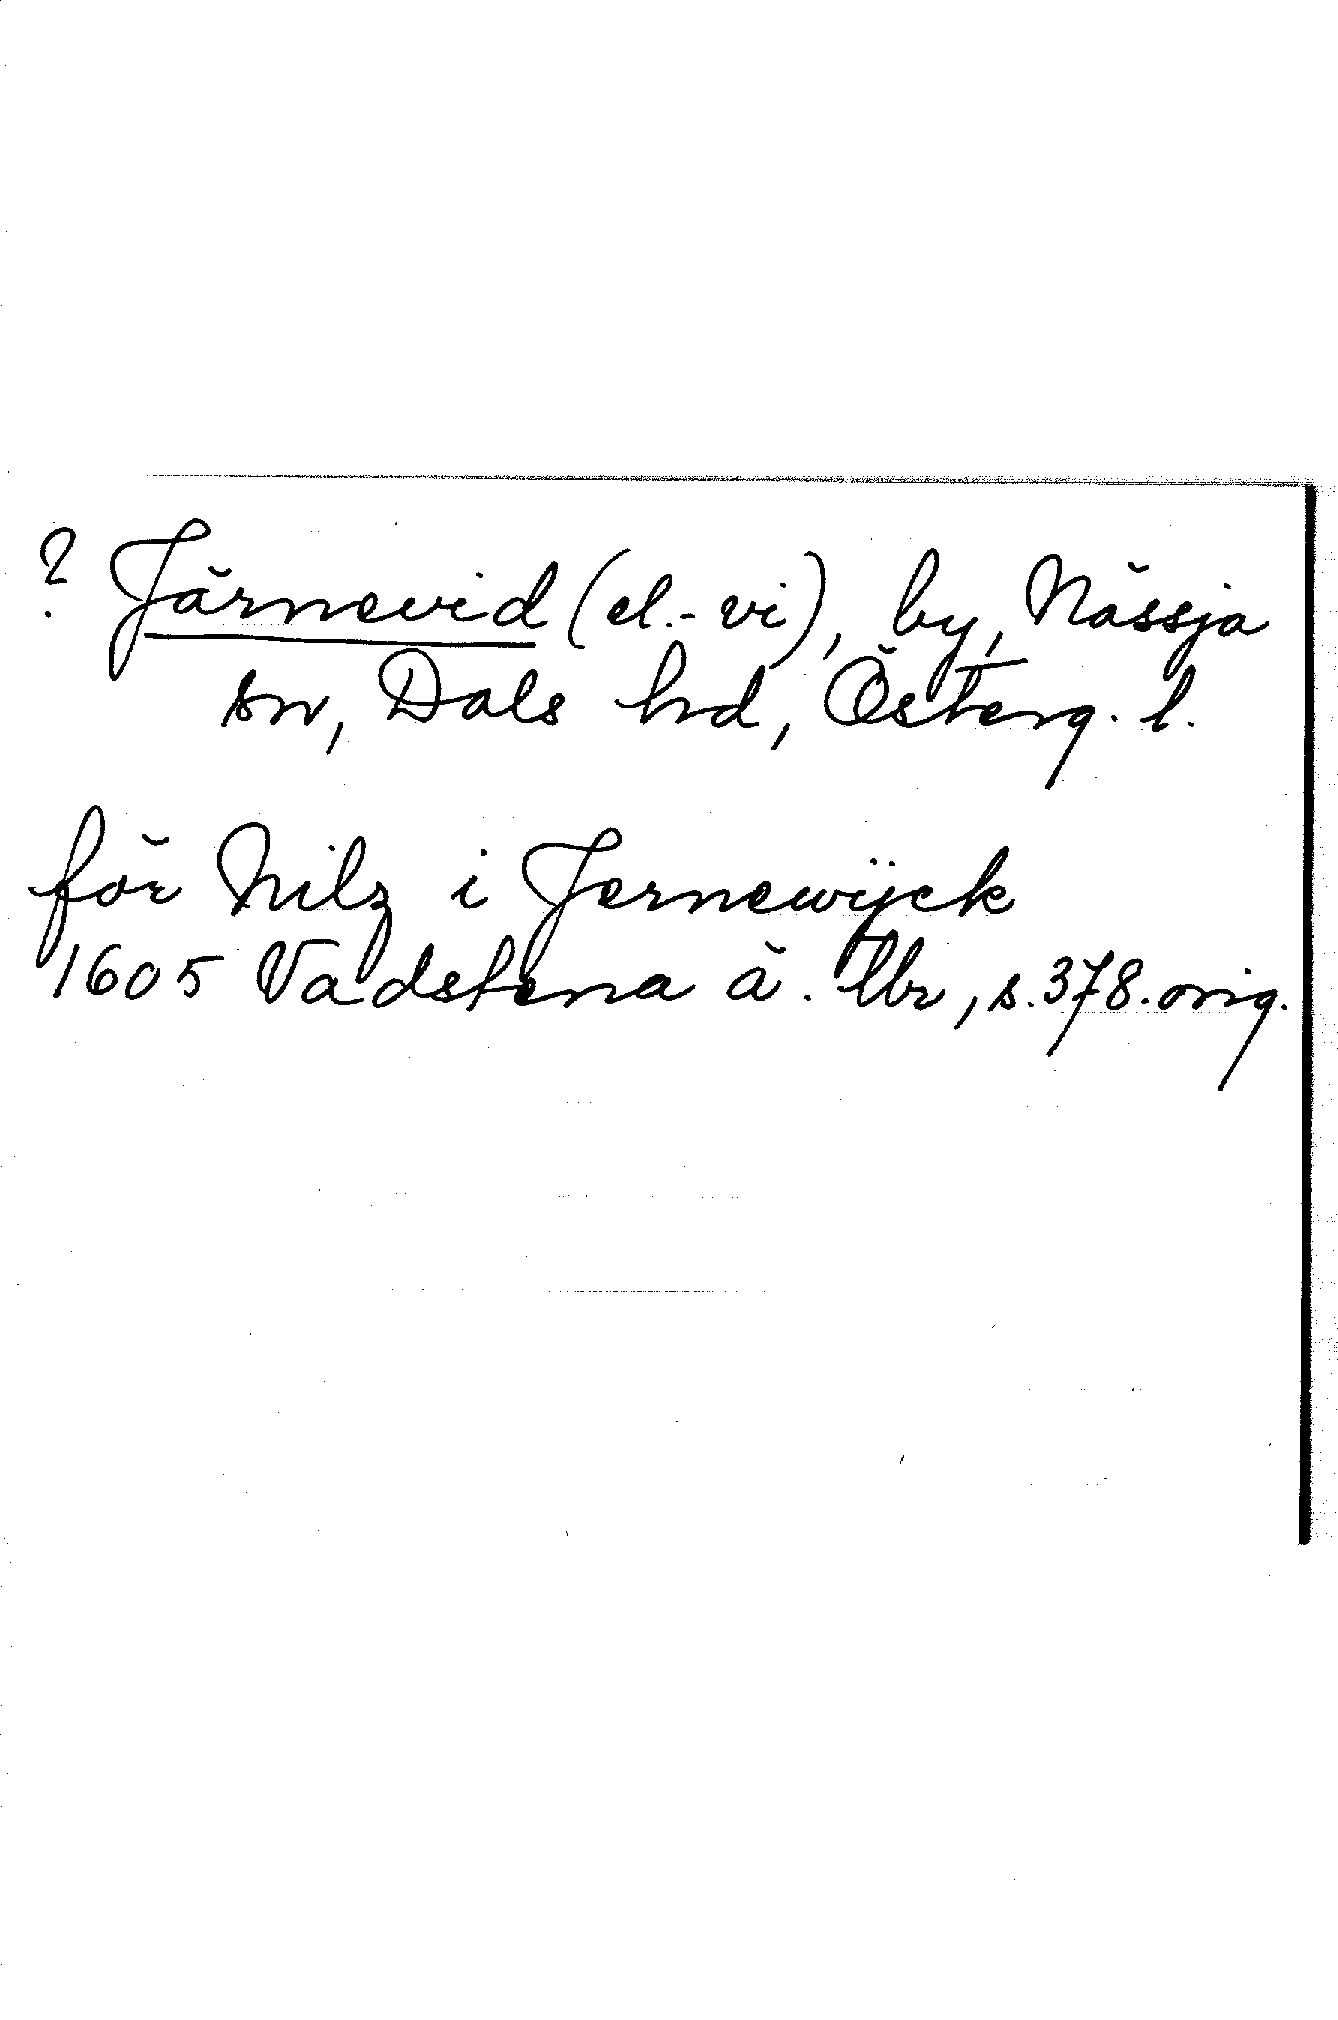 ? Järnevid (el. -vi), by, Nässja
sn, Dals hd, Österg. l.
för Nilz i Jernewÿck
1605 Vadstena ä. lbr, s. 378. orig.